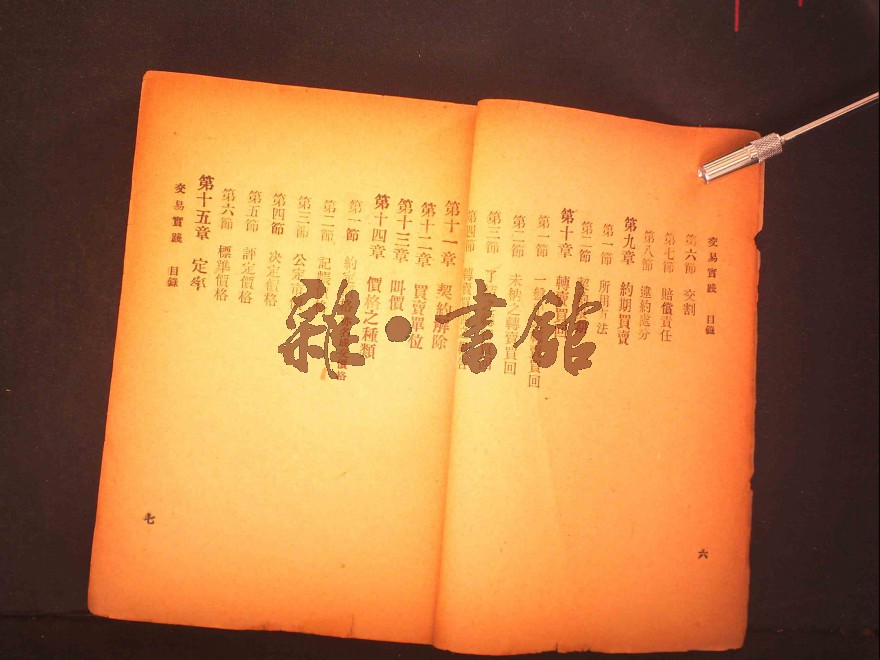 交易實踐 目錄
第六節 交割
第七節 賠償責任
第八節 違約處分
第九章 約期買賣
第一節 所用方法
第二節
第十章 轉賣買回
第一節 一般 買回
第二節 未納之轉賣買回
第三節 了
第四節 轉賣
六
第十一章 契約解除
第十二章 買賣單位
第十三章 叫價
第十四章 價格之種類
第一節 約定 價格
第二節 記帳
第三節 公定
第四節 決定價格
第五節 評定價格
第六節 標準價格
第十五章 定率
交易實踐 目錄
七
雜·書館